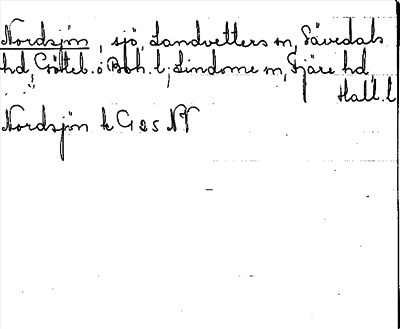 Nordsjön, sjö, Landvetters sn, Sävedals
hd, Göteb. o Boh. l; Lindome sn, Fjäre hd,
Hall. l
Nordsjön k G 25 NV